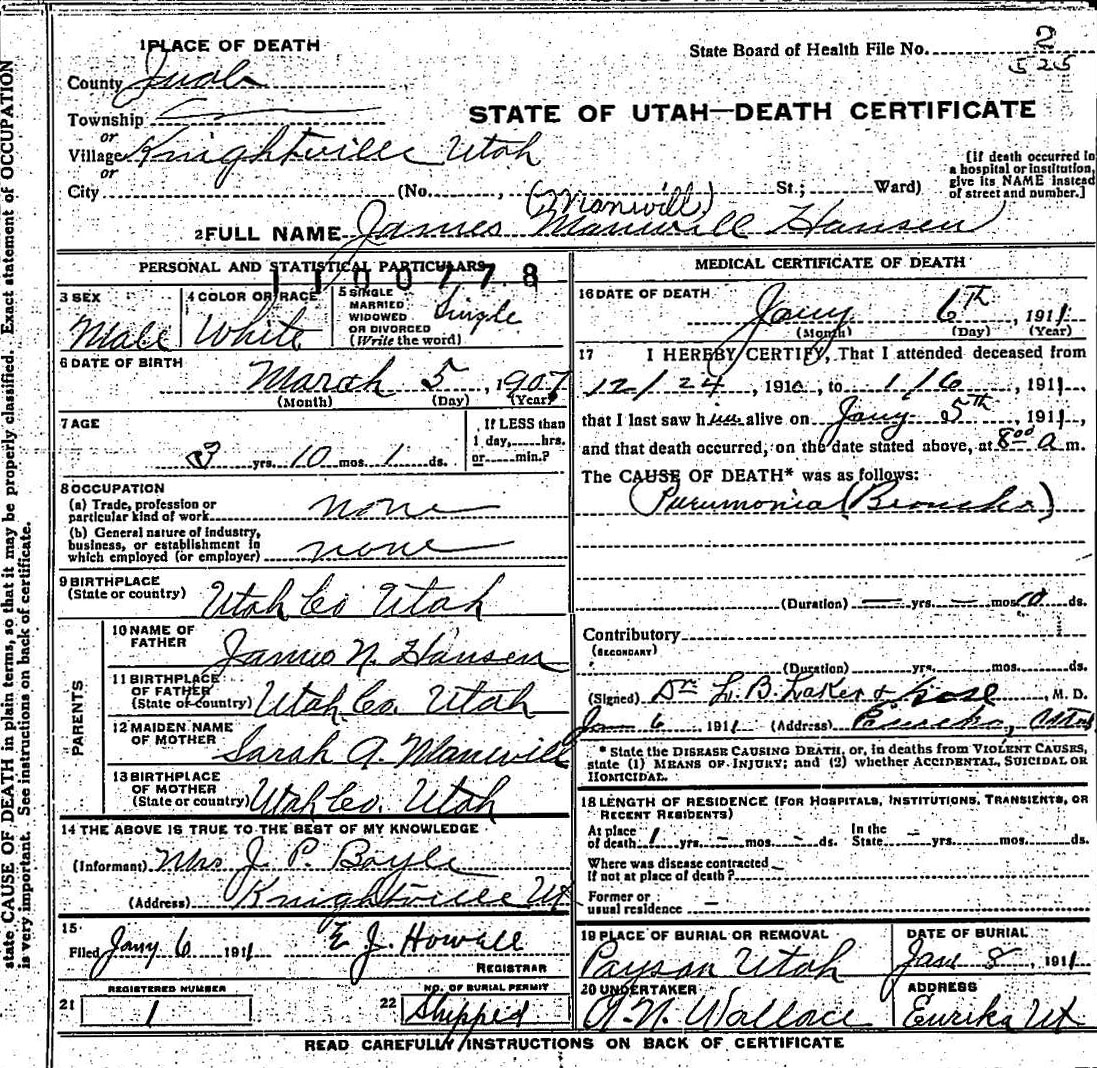 state CAUSE OF DEATH in plain terms, so that it may be properly classified. Exact statement of OCCUPATION
is very important. See instructions on back of certificate.
1 PLACE OF DEATH
State Board of Health File No. 2
525
County Juab
STATE OF UTAH—DEATH CERTIFICATE
Township
or
Village Knightville Utah
or
[If death occurred in
a hospital or institution,
give its NAME instead
of street and number.]
City (No. , St.; Ward)
(Manwill)
2 FULL NAME James Manwill Hansen
PERSONAL AND STATISTICAL PARTICULARS
1100778
3 SEX
Male
4 COLOR OR RACE
White
5 SINGLE
MARRIED
WIDOWED
OR DIVORCED
(Write the word)
Single
6 DATE OF BIRTH
March 5, 1907
(Month) (Day) (Year)
7 AGE
3 yrs. 10 mos. 1 ds.
If LESS than
1 day, hrs.
or min.?
8 OCCUPATION
(a) Trade, profession or
particular kind of work none
(b) General nature of industry,
business, or establishment in
which employed (or employer) none
9 BIRTHPLACE
(State or country) Utah Co Utah
PARENTS
10 NAME OF
FATHER James N. Hansen
11 BIRTHPLACE
OF FATHER
(State or country) Utah Co. Utah
12 MAIDEN NAME
OF MOTHER Sarah A. Manwill
13 BIRTHPLACE
OF MOTHER
(State or country) Utah Co. Utah
14 THE ABOVE IS TRUE TO THE BEST OF MY KNOWLEDGE
(Informant) Mrs J. P. Boyle
(Address) Knightville Ut
15
Filed Jany 6 1911 E J. Howell
REGISTRAR
REGISTERED NUMBER
21 1
NO. OF BURIAL PERMIT
22 Shipped
MEDICAL CERTIFICATE OF DEATH
16 DATE OF DEATH
Jany 6th, 1911
(Month) (Day) (Year)
17 I HEREBY CERTIFY, That I attended deceased from
12/24, 1910, to 1/6, 1911,
that I last saw him alive on Jany 5th, 1911
and that death occurred, on the date stated above, at 8 00 a m.
The CAUSE OF DEATH* was as follows:
Pneumonia (Broncho)
(Duration) — yrs. — mos. 10 ds.
Contributory
(SECONDARY)
(Duration) yrs. mos. ds.
(Signed) Dr L. B. Laker &, M. D.
Jan 6 1911 (Address)
* State the DISEASE CAUSING DEATH, or, in deaths from VIOLENT CAUSES,
state (1) MEANS OF INJURY; and (2) whether ACCIDENTAL, SUICIDAL OR
HOMICIDAL.
18 LENGTH OF RESIDENCE (FOR HOSPITALS, INSTITUTIONS, TRANSIENTS, OR
RECENT RESIDENTS)
At place
of death 1 yrs. - mos. - ds.
In the
State - yrs. mos. ds.
Where was disease contracted
If not at place of death? -
Former or
usual residence -
19 PLACE OF BURIAL OR REMOVAL
Payson Utah
DATE OF BURIAL
Jan 8, 1911
20 UNDERTAKER
A. N. Wallace
ADDRESS
Eureka Ut
READ CAREFULLY INSTRUCTIONS ON BACK OF CERTIFICATE